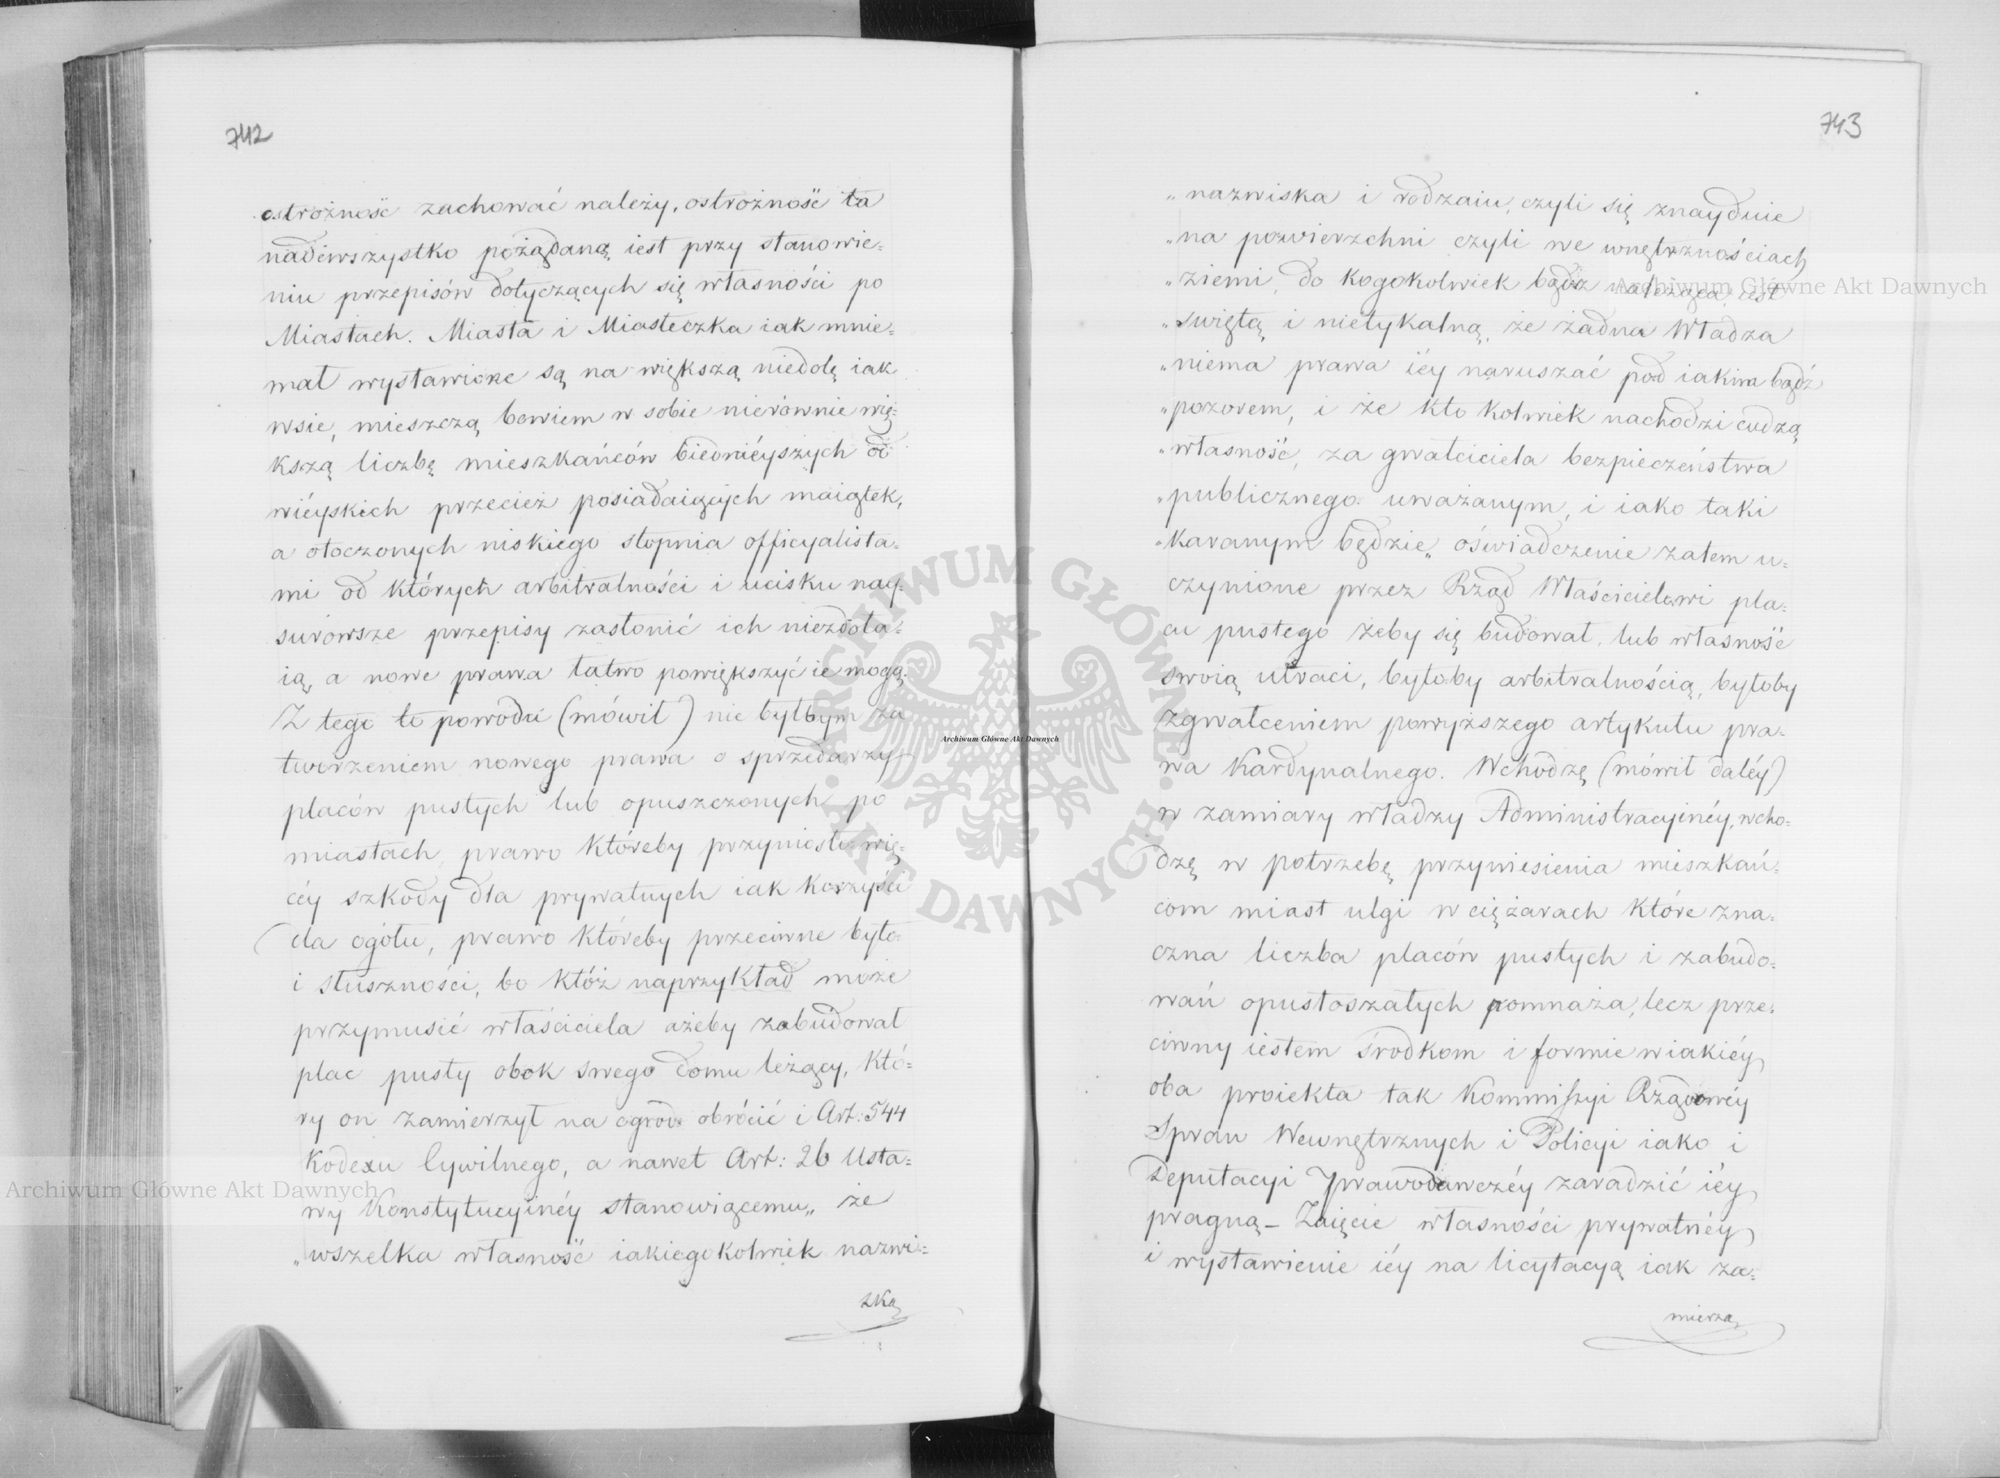 742
ostrożność zachować należy, ostrożność ta
nadewszystko pożądaną iest przy stanowie=
niu przepisów dotyczących się własności po
Miastach. Miasta i Miasteczka iak mnie=
mał wystawione są na większą niedolę iak
wsie, mieszczą bowiem w sobie nierównie wię=
kszą liczbę mieszkańców biednieyszych od
wieyskich przecież posiadaiących maiątek,
a otoczonych niskiego stopnia officyalista=
mi od których arbitralności i ucisku nay=
surowsze przepisy zasłonić ich niezdoła=
ią, a nowe prawa łatwo powiększyć ie mogą.
Z tego to powodu (mówił) nie byłbym za
tworzeniem nowego prawa o sprzedarzy
placów pustych lub opuszczonych po
miastach, prawo któreby przyniosło wię=
céy szkody dla prywatnych iak korzyści
dla ogółu, prawo któreby przeciwne było
i słuszności, bo któż naprzykład może
przymusić właściciela ażeby zabudował
plac pusty obok swego domu leżący, któ=
ry on zamierzył na ogród obrócić i Art: 544
Kodexu Cywilnego, a nawet Art: 26 Usta=
wy Konstytucyinéy stanowiącemu „ że
„ wszelka własność iakiegokolwiek nazwi=
zka
743
„ nazwiska i rodzaiu, czyli się znayduie
„ na powierzchni czyli we wnętrznościach
„ ziemi, do kogokolwiek bądź należąca, iest
„ swiętą i nietykalną, że żadna Władza
„ niema prawa iéy naruszać pod iakim bądź
„ pozorem, i że kto kolwiek nachodzi cudzą
„ własność, za gwałciciela bezpieczeństwa
„ publicznego uważanym, i iako taki
„ karanym będzie „ oświadczenie zatem u=
czynione przez Rząd Właścicielowi pla=
cu pustego żeby się budował, lub własność
swoią utraci, byłoby arbitralnością, byłoby
zgwałceniem powyższego artykułu pra=
wa Kardynalnego. Wchodzę (mówił daléy)
w zamiary władzy Administracyinéy, wcho=
dzę w potrzebę przyniesienia mieszkań=
com miast ulgi w ciężarach które zna=
czna liczba placów pustych i zabudo=
wań opustoszałych pomnaża, lecz prze=
ciwny iestem środkom i formie w iakiéy
oba proiekta tak Kommissyi Rządowéy
Spraw Wewnętrznych i Policyi iako i
Deputacyi Prawodawczéy zaradzić iéy
pragną – Zaięcie własności prywatnéy
i wystawienie iéy na licytacyą iak za=
mierza
Archiwum Główne Akt Dawnych
Archiwum Główne Akt Dawnych
Archiwum Główne Akt Dawnych
ARCHIWUM GŁÓWNE AKT DAWNYCH